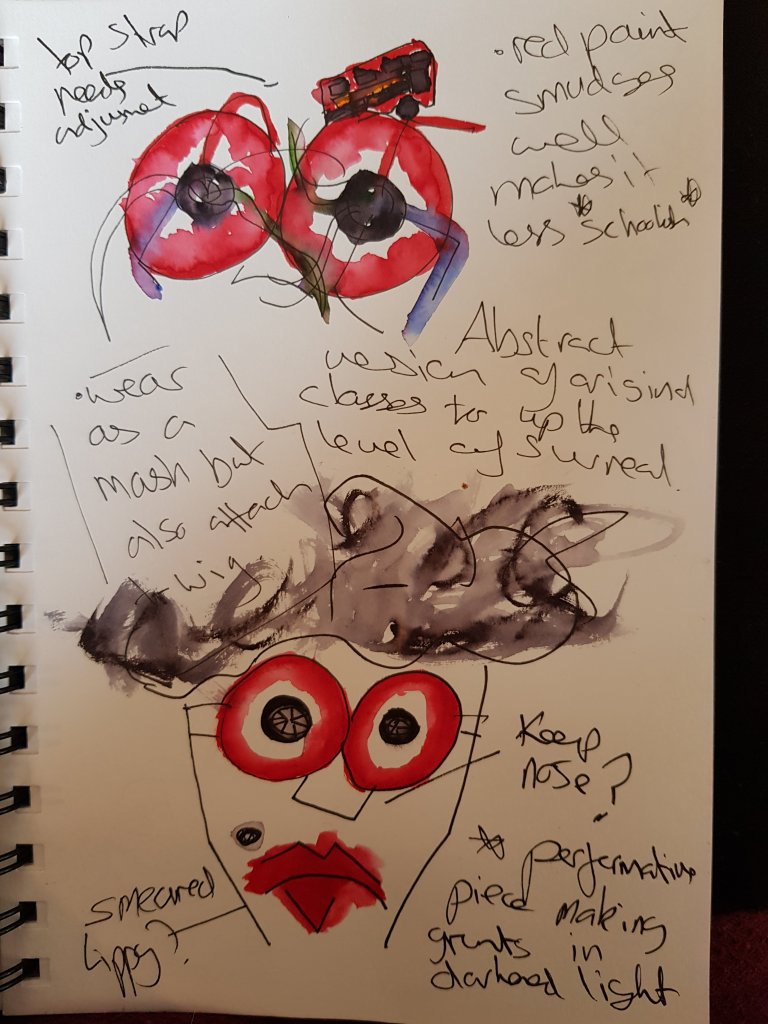 top strap
needs
adjusmet
• red paint
smudges
well
makes it
less *schoolish*
Abstract
version of original
glasses to up the
level of surreal.
• wear
as a
mask but
also attach
wig
Keep
nose?
smeared
lippy?
* performative
piece making
grunts in
darkened light